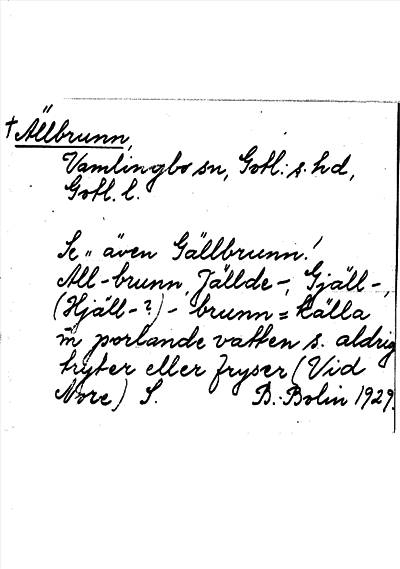 †Ällbrunn,
Vamlingbo sn, Gotl: s. hd,
Gotl. l.
Se „ även Gällbrunn!
All-brunn, Jällde-, Gjäll-,
(Hjäll-?)- brunn = källa
m porlande vatten s. aldrig
tryter eller fryser (Vid
Nore) S. B. Bolin 1929.